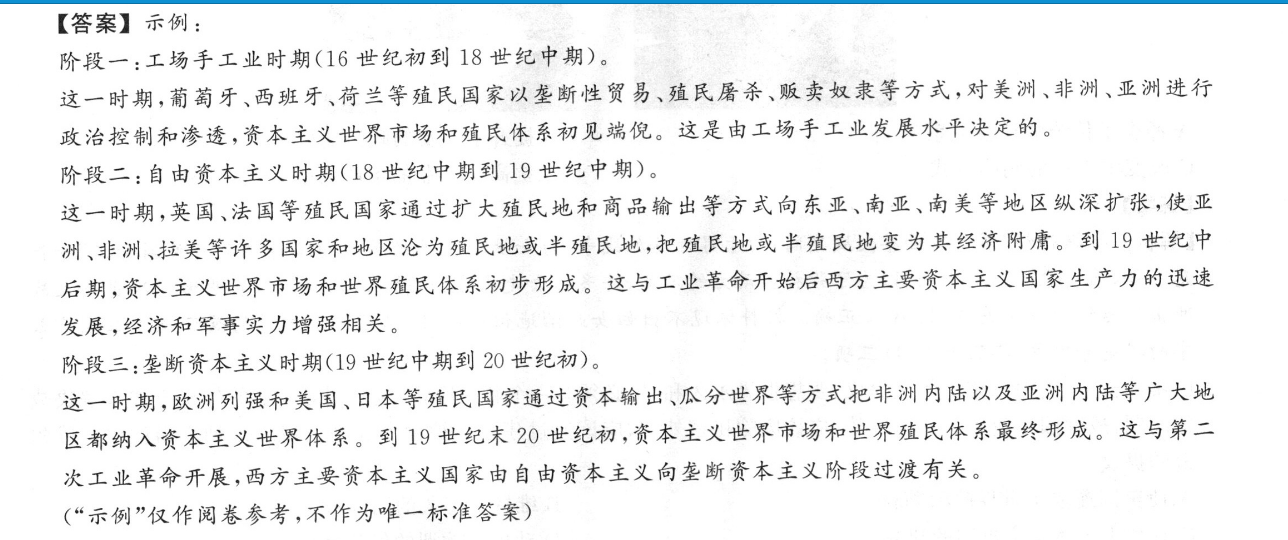 【答案】示例：
阶段一：工场手工业时期(16 世纪初到 18 世纪中期)。
这一时期，葡萄牙、西班牙、荷兰等殖民国家以垄断性贸易、殖民屠杀、贩卖奴隶等方式，对美洲、非洲、亚洲进行
政治控制和渗透，资本主义世界市场和殖民体系初见端倪。这是由工场手工业发展水平决定的。
阶段二：自由资本主义时期(18 世纪中期到 19 世纪中期)。
这一时期，英国、法国等殖民国家通过扩大殖民地和商品输出等方式向东亚、南亚、南美等地区纵深扩张，使亚
洲、非洲、拉美等许多国家和地区沦为殖民地或半殖民地，把殖民地或半殖民地变为其经济附庸。到 19 世纪中
后期，资本主义世界市场和世界殖民体系初步形成。这与工业革命开始后西方主要资本主义国家生产力的迅速
发展，经济和军事实力增强相关。
阶段三：垄断资本主义时期(19 世纪中期到 20 世纪初)。
这一时期，欧洲列强和美国、日本等殖民国家通过资本输出、瓜分世界等方式把非洲内陆以及亚洲内陆等广大地
区都纳入资本主义世界体系。到 19 世纪末 20 世纪初，资本主义世界市场和世界殖民体系最终形成。这与第二
次工业革命开展，西方主要资本主义国家由自由资本主义向垄断资本主义阶段过渡有关。
(“示例”仅作阅卷参考，不作为唯一标准答案)